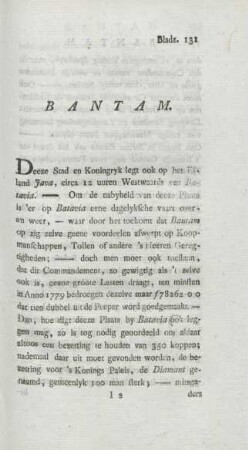 Bladz. 131
BANTAM.
Deeze Stad en Koningryk legt ook op het Ei-
land Java, circa 12 uuren Westwaards van Ba-
tavia. — Om de nabyheid van deeze Plaats
is 'er op Batavia eene dagelyksche vaart over
en weer, — waar door het toekomt dat Bantam
op zig zelve geene voordeelen afwerpt op Koop-
manschappen, Tollen of andere 's Heeren Gereg-
tigheden; — doch men moet ook
dat dit Commandement, zo gewigtig als 't zelve
ook is, geene groote Lasten draagt, ten minsten
in Anno 1779 bedroegen dezelve maar f78262 0 0
dat tien dubbel uit de Peeper word goedgemaakt. —
Dan, hoe digt deeze Plaats by Batavia ook leg-
gen mag, zo is tog nodig geoordeeld om aldaar
altoos een bezetting te houden van 350 koppen;
nademaal daar uit moet gevonden worden, de be-
zetting voor 's Konings Paleis, de Diamant ge-
naamd, gemeenlyk 100 man sterk; —
I 2 ders